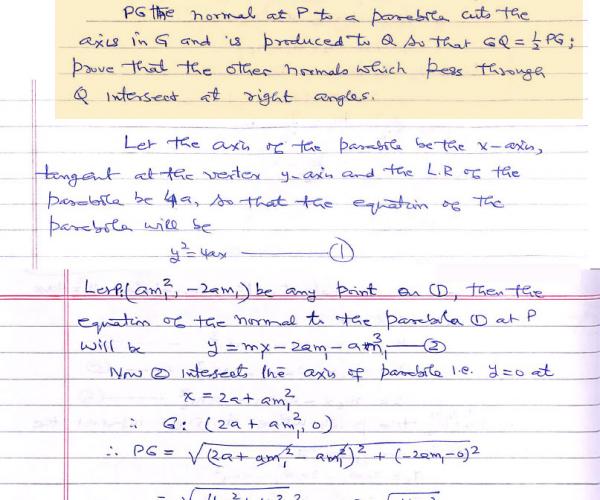 PG the normal at P to a parabola cuts the
axis in G and is produced to Q so that GQ = ½ PG;
prove that the other normals which pass through
Q intersect at right angles.
Let the axis of the parabola be the x-axis,
tangent at the vertex y-axis and the L.R of the
parabola be 4a, so that the equation of the
parabola will be
y² = 4ax ——— ①
Let P:(am₁², -2am₁) be any point on ①, then the
equation of the normal to the parabola ① at P
will be y = mx - 2am₁ - am₁³ —— ②
Now ② intesects the axis of parabola i.e. y=0 at
x = 2a + am₁²
∴ G: (2a + am₁², 0)
∴ PG = √(2a + am₁² - am₁²)² + (-2am₁-0)²